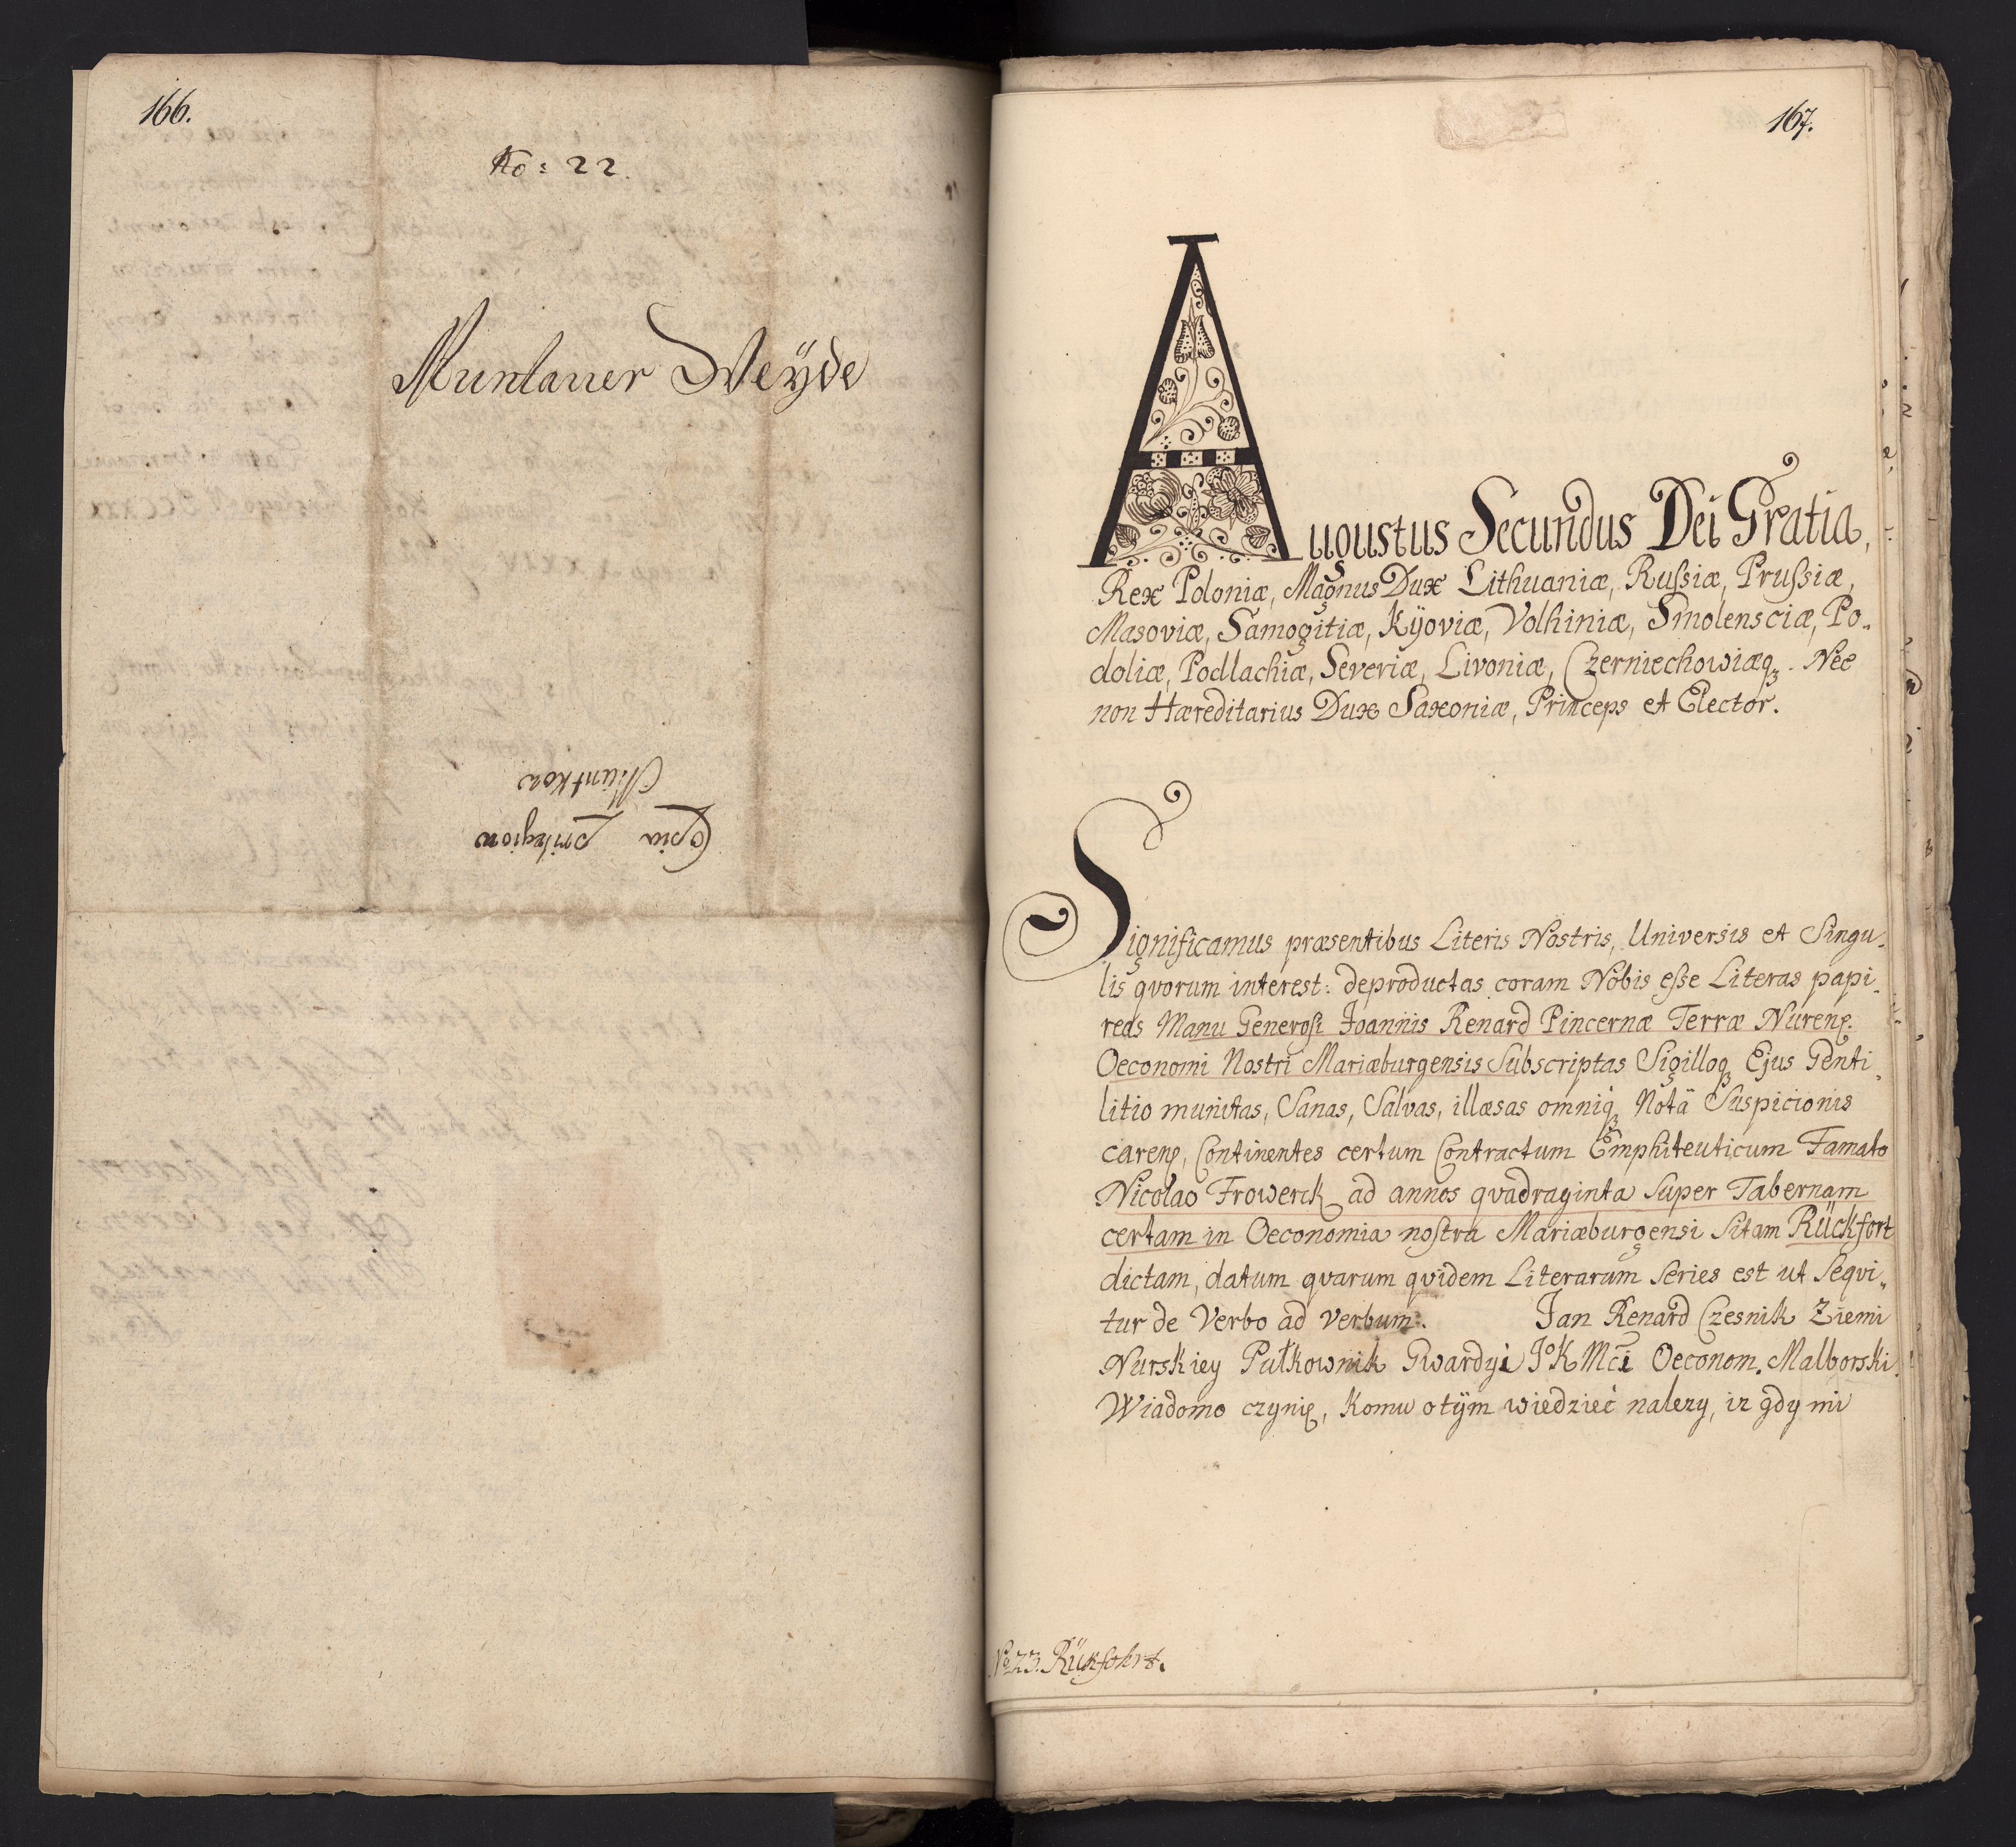 166.
No: 22.
Muntauer Weÿde
Copia privilegiow
Muntkow
167.
Augustus Secundus Dei Gratia,
Rex Poloniæ, Magnus Dux Lithuaniæ, Rußiæ, Prußiæ,
Masoviæ, Samogitiæ, Kÿoviæ, Volhiniæ, Smolensciæ, Po„
doliæ, Podlachiæ, Severiæ, Livoniæ, Czerniechowiæqꝫ. Nec
non Hæreditarius Dux Saxoniæ, Princeps et Elector.
Significamus præsentibus Literis Nostris, Universis et Singu„
lis qvorum interest: deproductas coram Nobis eße Literas papi„
reas Manu Generosi Joannis Renard Pincernæ Terræ Nureņ.
Oeconomi Nostri Mariæburgensis Subscriptas Sigilloqꝫ Ejus Genti„
litio munitas, Sanas, Salvas, illæsas omniqꝫ Notâ Suspicionis
careņ, Continentes certum Contractum Emphiteuticum Famato
Nicolao Frowerck ad annos qvadraginta Super Tabernam
certam in Oeconomia nostra Mariæburgensi Sitam Rückfort
dictam, datum qvarum qvidem Literarum Series est ut Seqvi„
tur de Verbo ad Verbum. Jan Renard Czesnik Ziemi
Nurskiey Pułkownik Gwardyi JºK Mci Oeconom. Malborski.
Wiadomo czynię, Komu o tÿm wiedzieć nalezy, iz gdy mi
No 23. Rükfohrt.